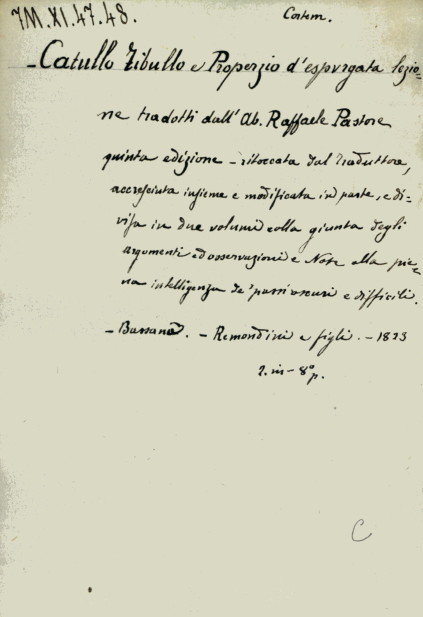 7M.XI.47.48.
Contem.
-Catullo Tibullo e Properzio d'espurgata lezio=
ne tradotti dall' Ab. Raffaele Pastore
quinta edizione - ritoccata dal traduttore,
accresciuta insieme e modificata in parte, e di=
visa in due volumi colla giunta degli
argomenti ed osservazioni e Note alla pie=
na intelligenza de' passi oscuri e difficili.
- Bassano. - Remondini e figli. - 1823
2. in - 8º p.
C